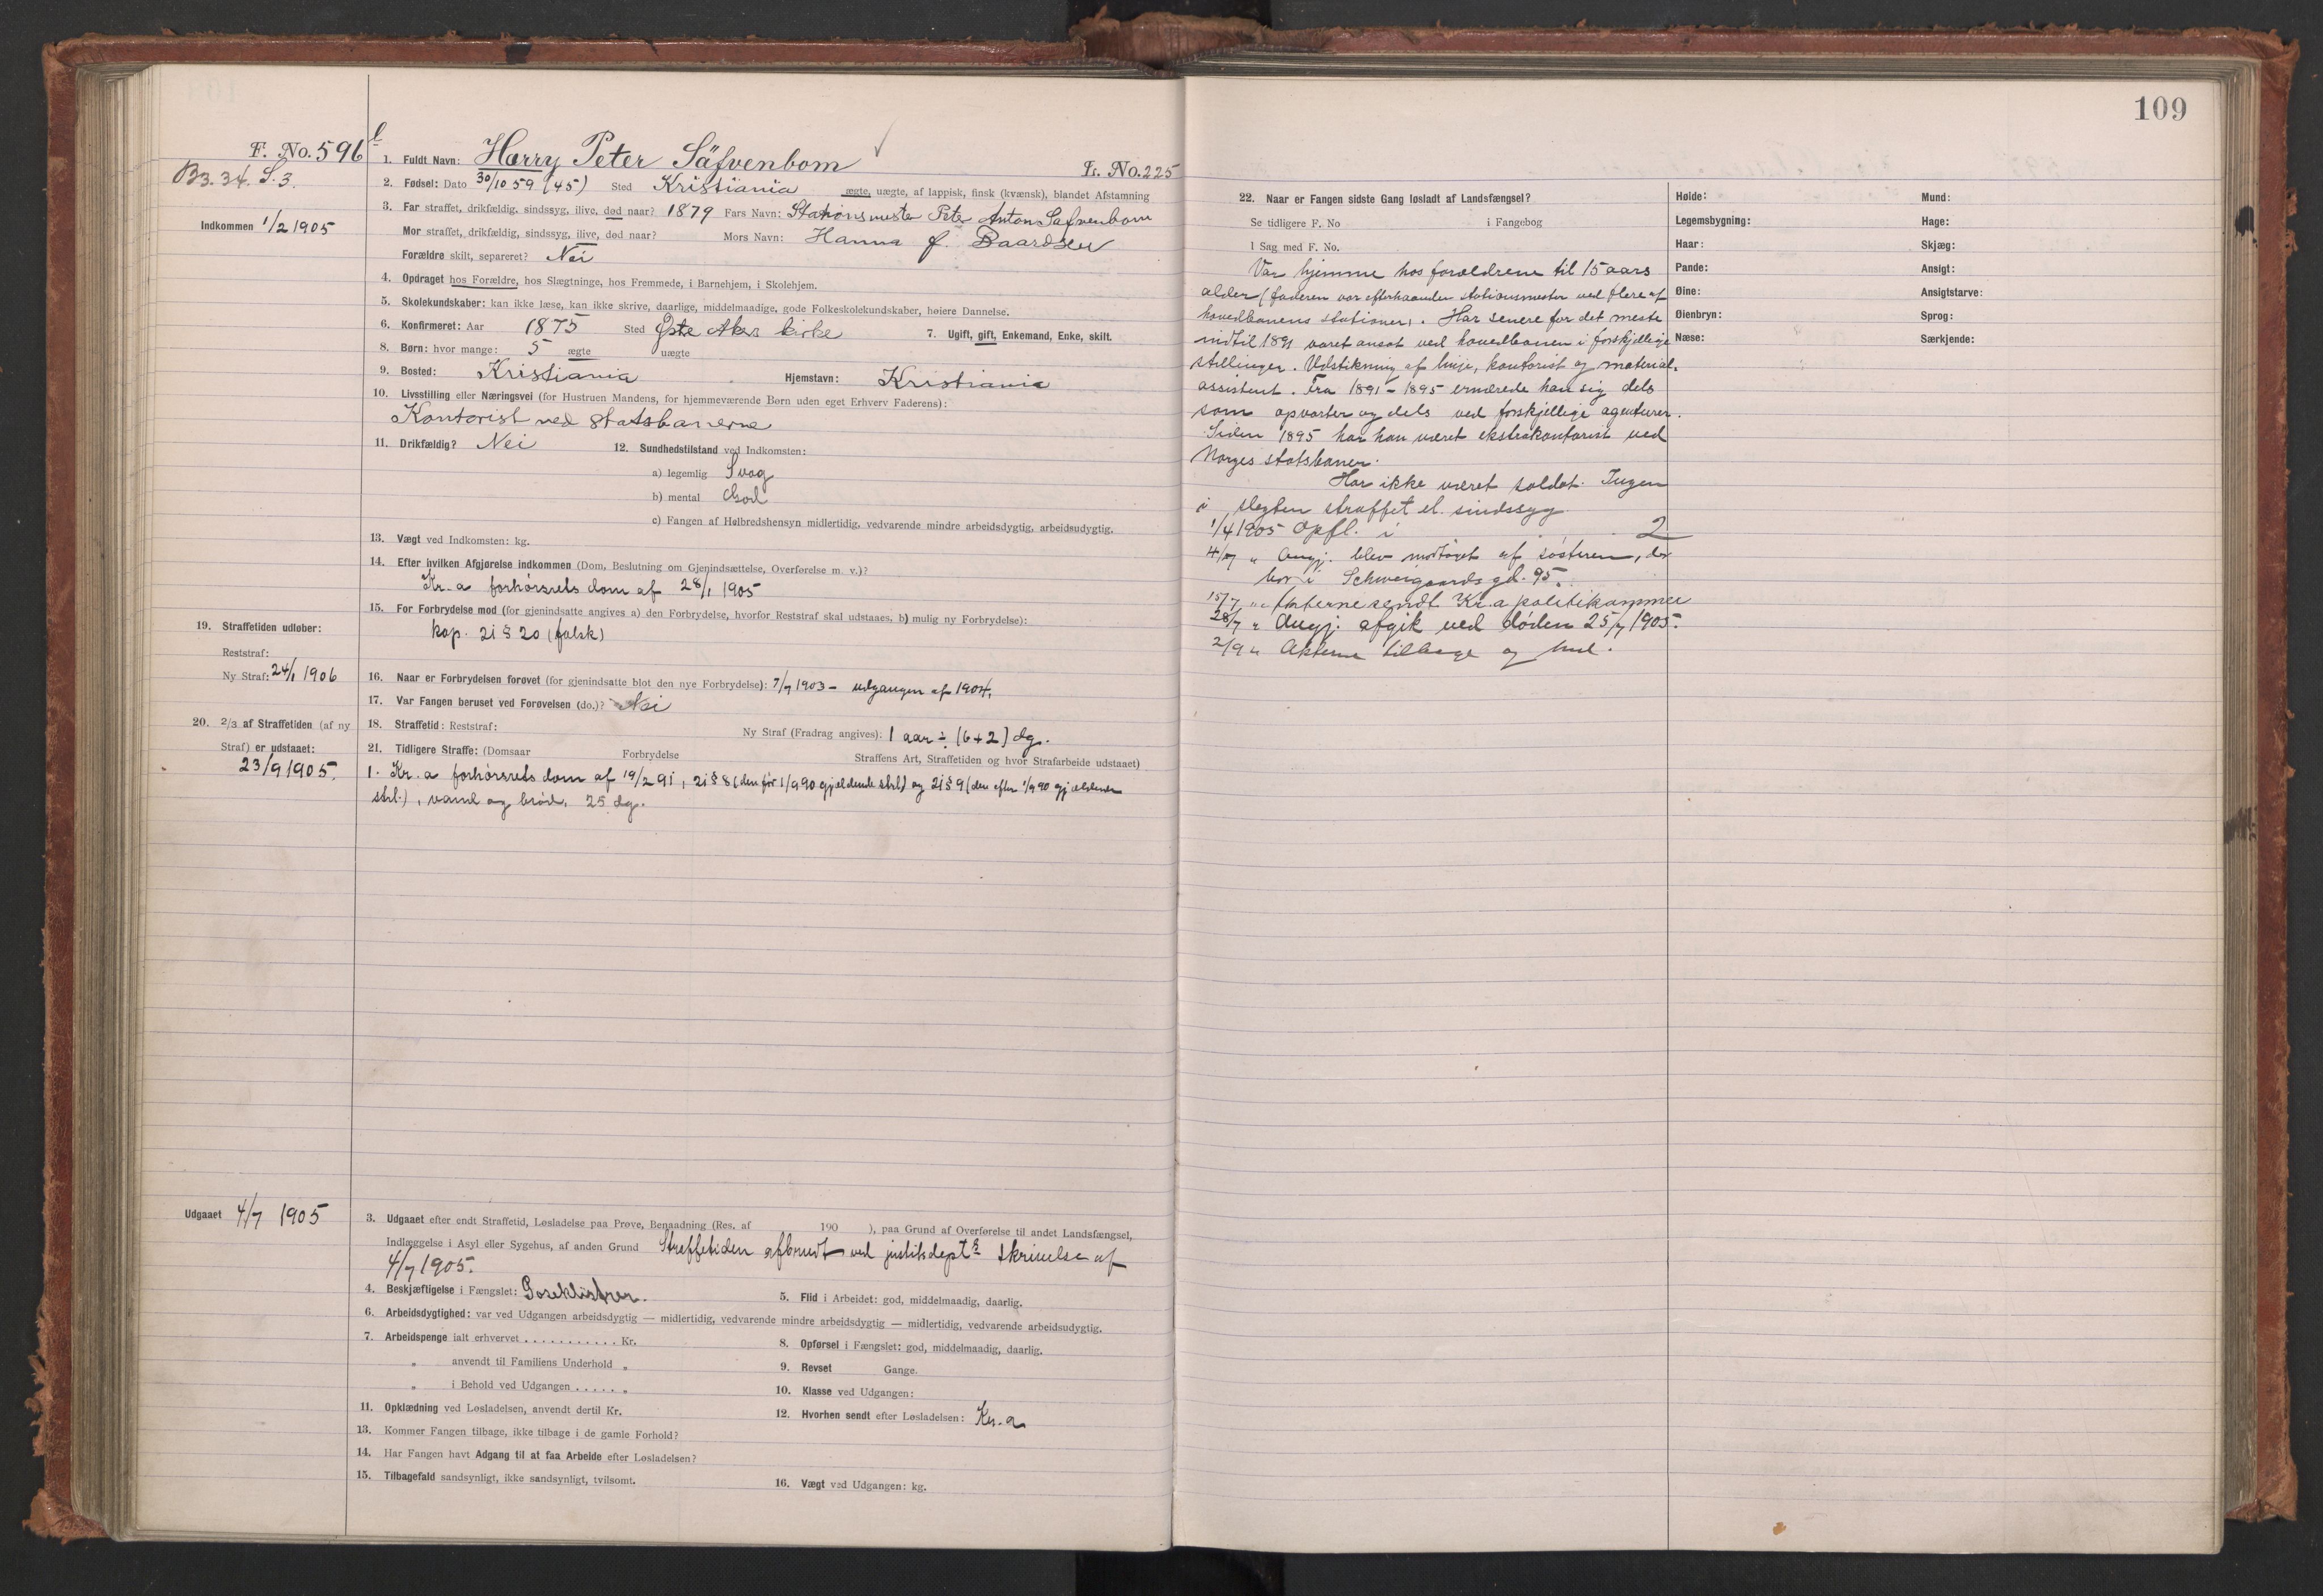 109
F. No. 596
B3. 34. S. 3.
Indkommen 1/2 1905
1. Fuldt Navn: Harry Peter Säfvenbom
Fr. No. 225
2. Fødsel: Dato 30/10 59 (45) Sted Kristiania ægte, uægte, af lappisk, finsk (kvænsk), blandet Afstamning
3. Far straffet, drikfældig, sindssyg, ilive, død naar? 1879 Fars Navn: Stationsmester Peter Anton Säfvenbom
Mor straffet, drikfældig, sindssyg, ilive, død naar? Mors Navn: Hanna f. Baardsen
Forældre skilt, separeret? Nei
4. Opdraget hos Forældre, hos Slægtninge, hos Fremmede, i Barnehjem, i Skolehjem.
5. Skolekundskaber: kan ikke læse, kan ikke skrive, daarlige, middelmaadige, gode Folkeskolekundskaber, høiere Dannelse.
6. Konfirmeret: Aar 1875 Sted Østre Aker kirke 7. Ugift, gift, Enkemand, Enke, skilt.
8. Børn: hvor mange: 5 ægte uægte
9. Bosted: Kristiania Hjemstavn: Kristiania
10. Livsstilling eller Næringsvei (for Hustruen Mandens, for hjemmeværende Børn uden eget Erhverv Faderens):
Kontorist ved statsbanerne
11. Drikfældig? Nei 12. Sundhedstilstand ved Indkomsten:
a) legemlig Svag
b) mental God
c) Fangen af Helbredshensyn midlertidig, vedvarende mindre arbeidsdygtig, arbeidsudygtig.
13. Vægt ved Indkomsten: kg.
14. Efter hvilken Afgjørelse indkommen (Dom, Beslutning om Gjenindsættelse, Overførelse m. v.)?
Kr.a forhørsrets dom af 28/1 1905
15. For Forbrydelse mod (for gjenindsatte angives a) den Forbrydelse, hvorfor Reststraf skal udstaaes, b) mulig ny Forbrydelse):
kap. 21 § 20 (falsk)
19. Straffetiden udløber:
Reststraf:
Ny Straf: 24/1 1906
16. Naar er Forbrydelsen forøvet (for gjenindsatte blot den nye Forbrydelse): 7/7 1903 - udgangen af 1904.
17. Var Fangen beruset ved Forøvelsen (do.)? Nei
20. 2/3 af Straffetiden (af ny Straf) er udstaaet:
23/9 1905.
18. Straffetid: Reststraf: Ny Straf (Fradrag angives): 1 aar ÷ (6+2) dg.
21. Tidligere Straffe: (Domsaar Forbrydelse Straffens Art, Straffetiden og hvor Strafarbeide udstaaet)
1. Kr.a forhørsrets dom af 19/2 91, 21 § 8 (den før 1/9 90 gjældende strl.) og 21 § 9 (den efter 1/9 90 gjældende
strl.), vand og brød, 25 dg.
Udgaaet 4/7 1905
3. Udgaaet efter endt Straffetid, Løsladelse paa Prøve, Benaadning (Res. af 190 ), paa Grund af Overførelse til andet Landsfængsel,
Indlæggelse i Asyl eller Sygehus, af anden Grund Straffetiden afbrudt ved justitsdepts skrivelse af
4/7 1905.
4. Beskjæftigelse i Fængslet: Poseklistrer. 5. Flid i Arbeidet: god, middelmaadig, daarlig.
6. Arbeidsdygtighed: var ved Udgangen arbeidsdygtig — midlertidig, vedvarende mindre arbeidsdygtig — midlertidig, vedvarende arbeidsudygtig.
7. Arbeidspenge ialt erhvervet . . . . . . . . . . . Kr. 8. Opførsel i Fængslet: god, middelmaadig, daarlig.
„ anvendt til Familiens Underhold „ 9. Revset Gange.
„ i Behold ved Udgangen . . . . . „ 10. Klasse ved Udgangen:
11. Opklædning ved Løsladelsen, anvendt dertil Kr. 12. Hvorhen sendt efter Løsladelsen: Kr.a
13. Kommer Fangen tilbage, ikke tilbage i de gamle Forhold?
14. Har Fangen havt Adgang til at faa Arbeide efter Løsladelsen?
15. Tilbagefald sandsynligt, ikke sandsynligt, tvilsomt. 16. Vægt ved Udgangen: kg.
22. Naar er Fangen sidste Gang løsladt af Landsfængsel?
Se tidligere F. No i Fangebog
I Sag med F. No.
Var hjemme hos forældrene til 15 aars
alder (faderen var efterhaanden stationsmester ved flere af
hovedbanens stationer). Har senere for det meste
indtil 1891 været ansat ved hovedbanen i forskjellige
stillinger. Udstikning af linje, kontorist og material-
assistent. Fra 1891-1895 ernærede han sig dels
som opvarter og dels ved forskjellige agenturer.
Siden 1895 har han været ekstrakontorist ved
Norges statsbaner.
Har ikke været soldat. Ingen
i slegten straffet el. sindssyg.
1/4 1905 Opfl. i 2
4/7 „ Angj. blev modtaget af søsteren, der
bor i Schweigaards gd. 95.
15/7 „ Akterne sendt Kr.a politikammer
28/7 „ Angj. afgik ved døden 25/7 1905.
2/9 „ Akterne tilbage og henl.
Høide:
Legemsbygning:
Haar:
Pande:
Øine:
Øienbryn:
Næse:
Mund:
Hage:
Skjæg:
Ansigt:
Ansigtstarve:
Sprog:
Særkjende: